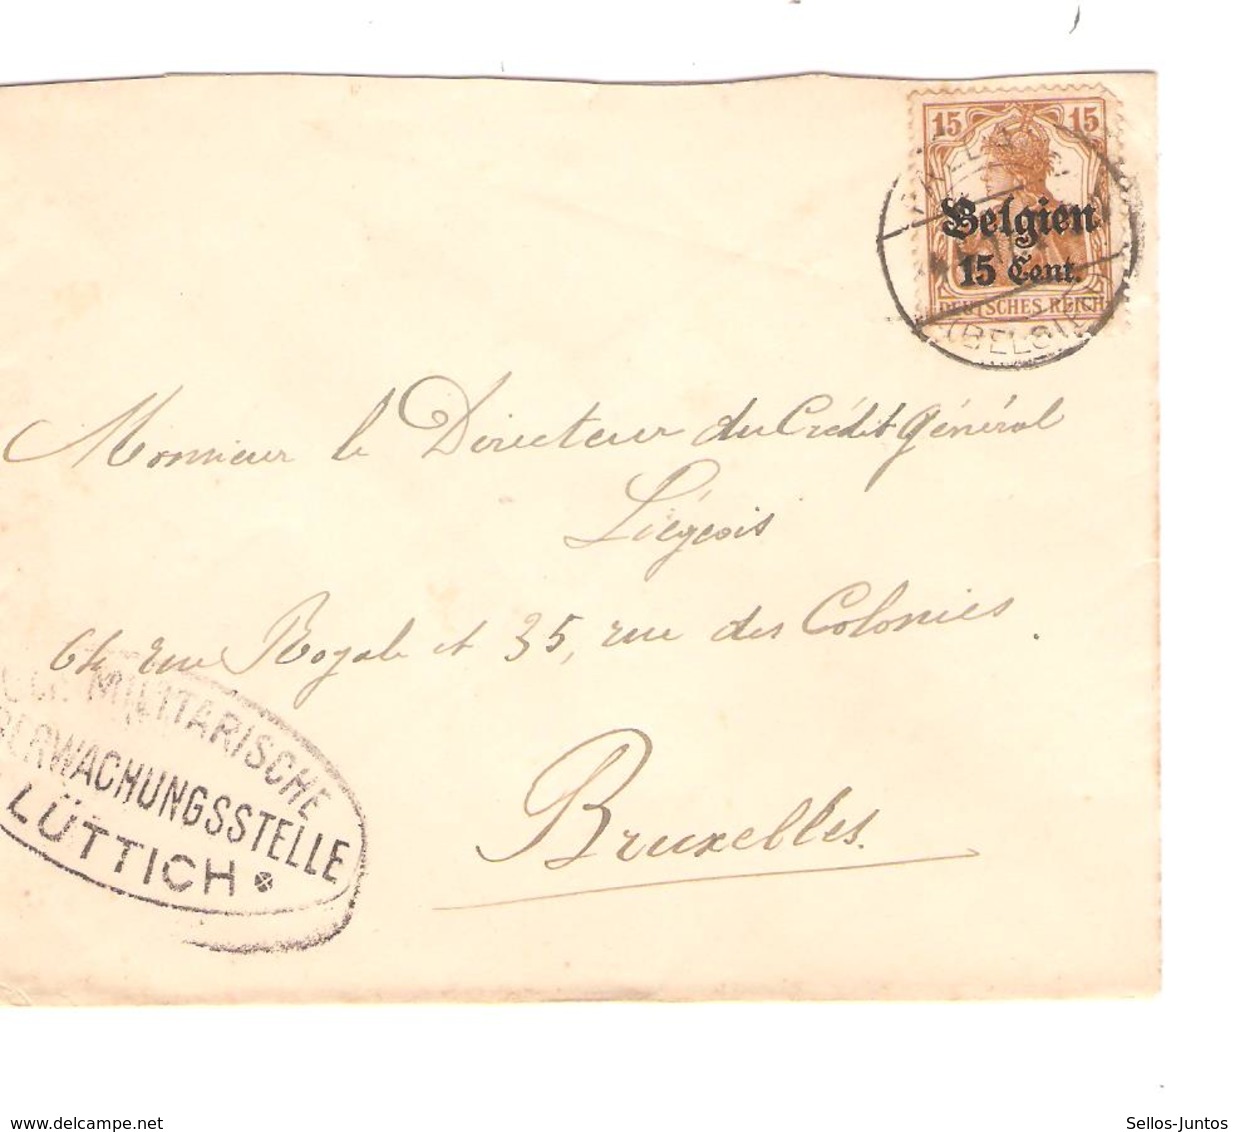 15 15
Belgien
15 Cent.
DEUTSCHES REICH
(BELGIEN)
Monsieur le Directeur du Crédit Général
Liégeois
64 rue Royale et 35, rue des Colonies.
Bruxelles.
MILITÄRISCHE
ÜBERWACHUNGSSTELLE
LÜTTICH
www.delcampe.net
Sellos-Juntos